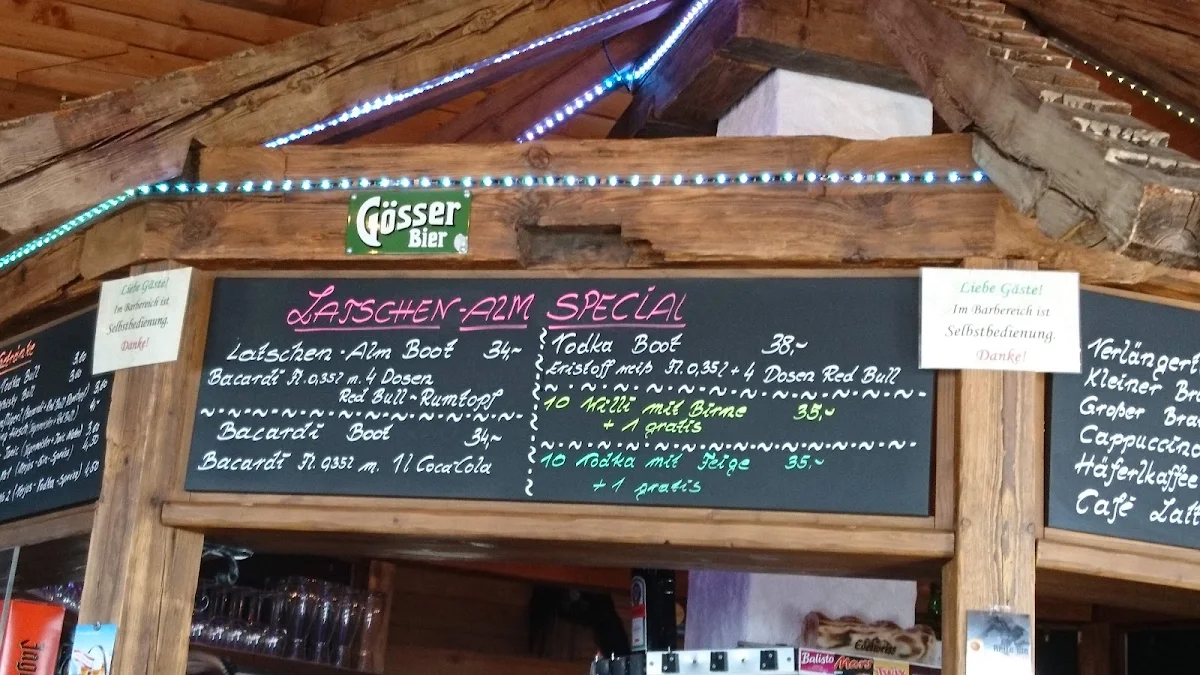 Gösser
Bier
Liebe Gäste!
Im Barbereich ist
Selbstbedienung.
Danke!
LATSCHEN-ALM SPECIAL
Latschen-Alm Boot 34,~
Bacardi Fl. 0,35l m. 4 Dosen
Red Bull-Rumtopf
Bacardi Boot 34,~
Bacardi Fl. 0,35l m. 1l Coca Cola
Vodka Boot 38,~
Eristoff weiß Fl. 0,35l + 4 Dosen Red Bull
10 Willi mit Birne 35,~
+ 1 gratis
10 Vodka mit Feige 35,~
+ 1 gratis
Liebe Gäste!
Im Barbereich ist
Selbstbedienung.
Danke!
Vodka Bull 3,60
Kleiner
Großer
Cappuccino
Häferlkaffee
Café
Edelweiss
Balisto
Mars
Twix